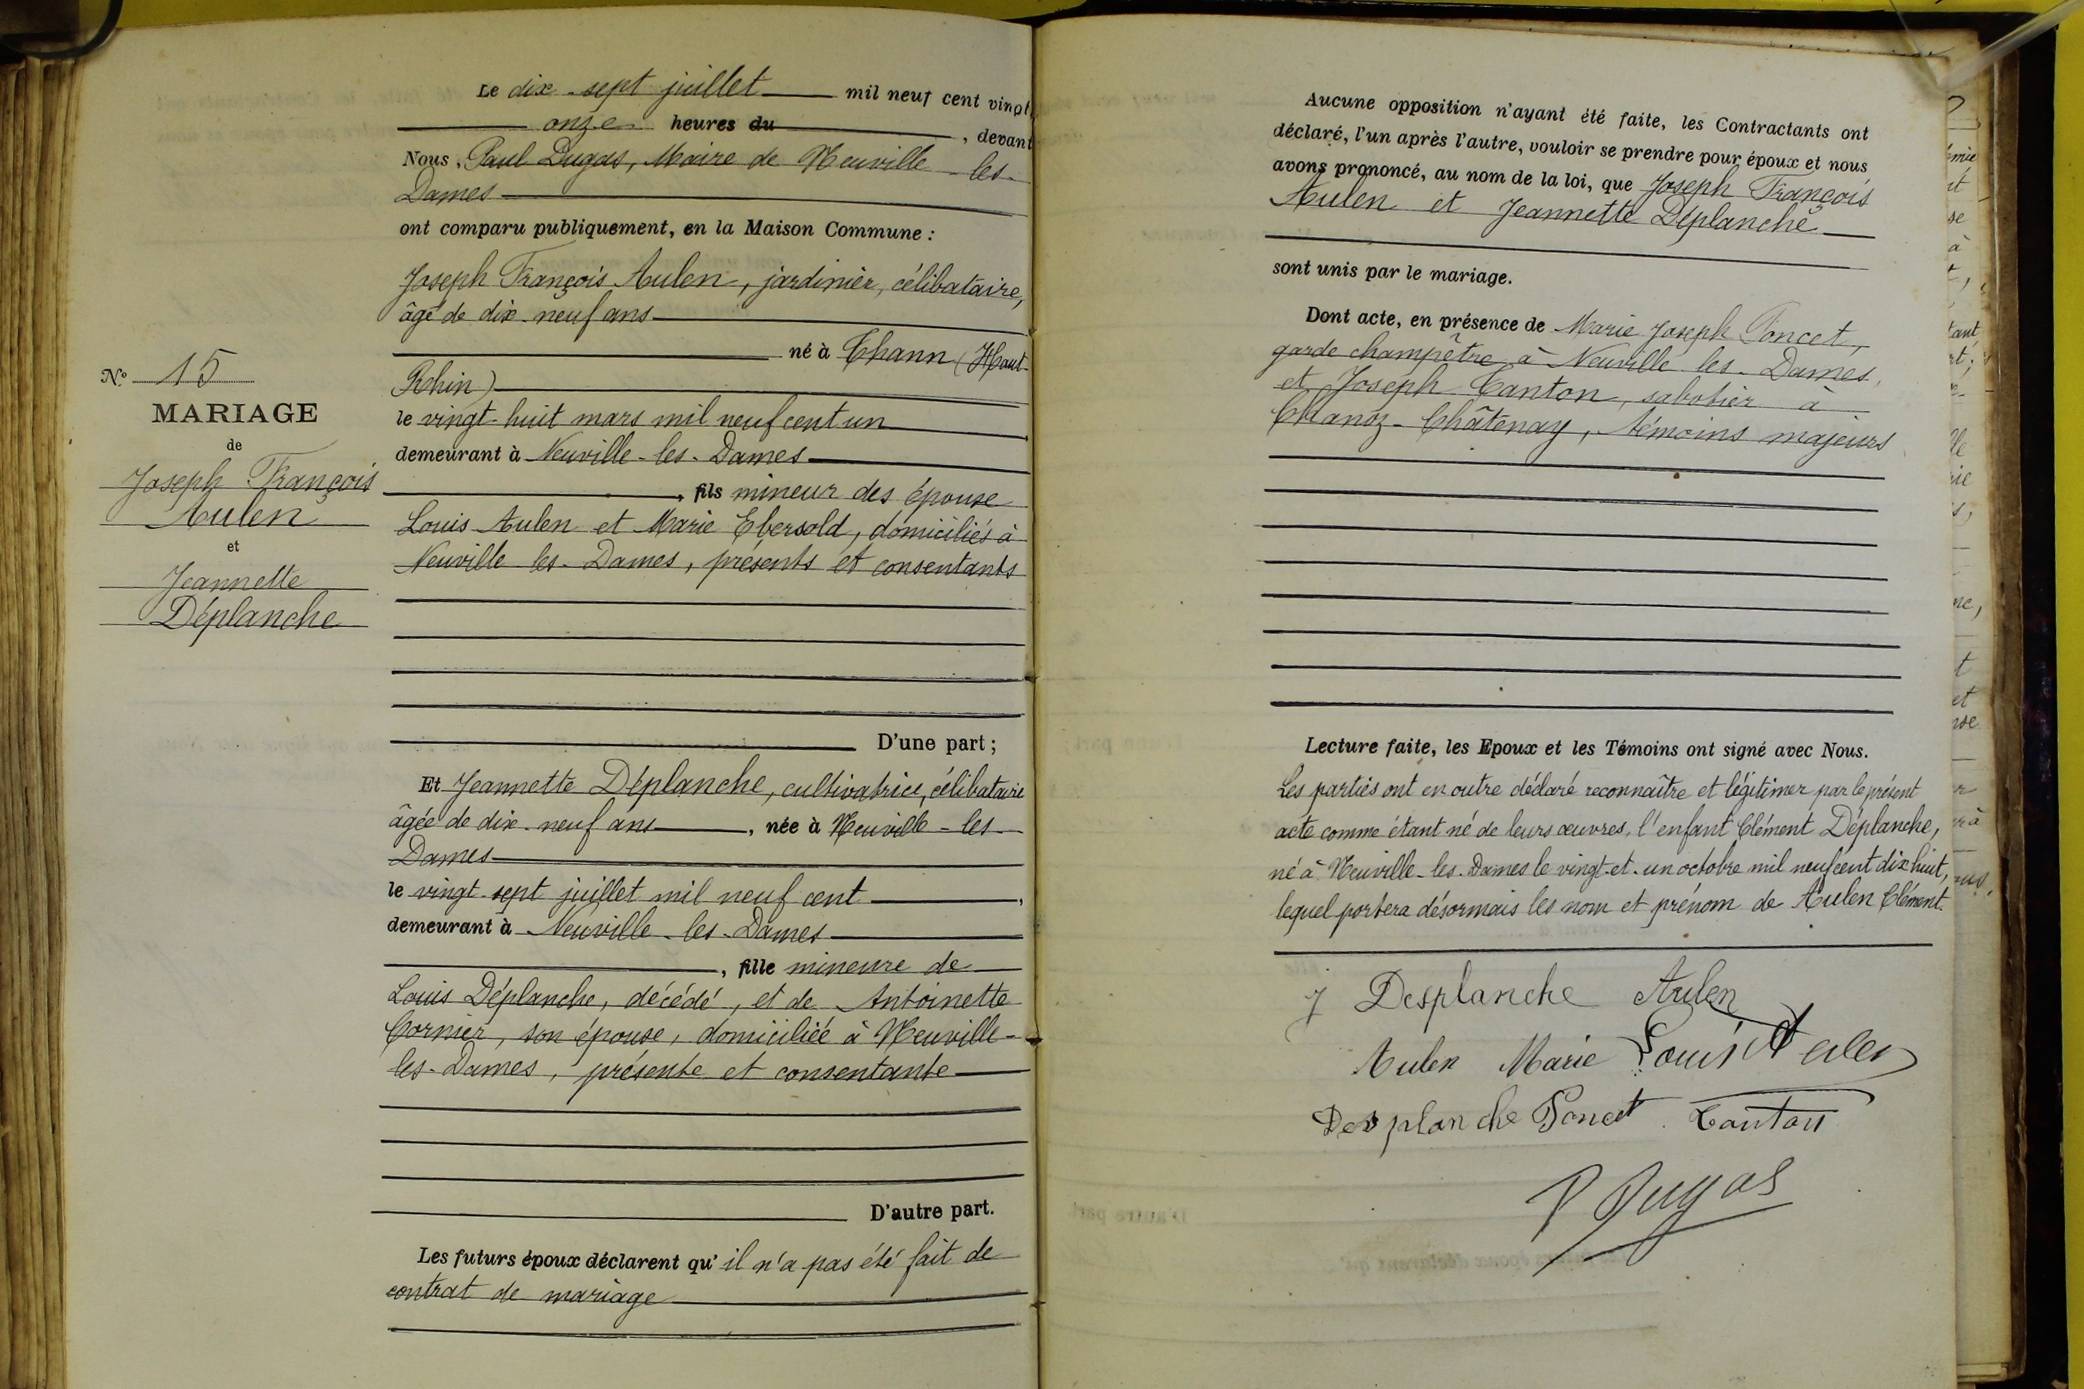 Le dix-sept juillet mil neuf cent vingt
onze heures du , devant
Nous, Paul Dugas, Maire de Neuville-les-
Dames
ont comparu publiquement, en la Maison Commune :
Joseph François Aulen, jardinier, célibataire,
âgé de dix-neuf ans
né à Thann (Haut-
Rhin)
le vingt-huit mars mil neuf cent un
demeurant à Neuville-les-Dames
, fils mineur des épouse
Louis Aulen et Marie Ebersold, domiciliés à
Neuville les-Dames, présents et consentants
D'une part ;
N° 15
MARIAGE
de
Joseph François
Aulen
et
Jeannette
Déplanche
Et Jeannette Déplanche, cultivatrice, célibataire
âgée de dix-neuf ans , née à Neuville-les-
Dames
le vingt-sept juillet mil neuf cent ,
demeurant à Neuville-les-Dames
, fille mineure de
Louis Déplanche, décédé, et de Antoinette
Cornier, son épouse, domiciliée à Neuville-
les-Dames, présente et consentante
D'autre part.
Les futurs époux déclarent qu'il n'a pas été fait de
contrat de mariage
Aucune opposition n'ayant été faite, les Contractants ont
déclaré, l'un après l'autre, vouloir se prendre pour époux et nous
avons prononcé, au nom de la loi, que Joseph François
Aulen et Jeannette Déplanche
sont unis par le mariage.
Dont acte, en présence de Marie Joseph Poncet,
garde champêtre à Neuville les-Dames,
et Joseph Canton, sabotier à
Chanoz-Châtenay, témoins majeurs
Lecture faite, les Epoux et les Témoins ont signé avec Nous.
Les parties ont en outre déclaré reconnaître et légitimer par le présent
acte comme étant né de leurs œuvres, l'enfant Clément Déplanche,
né à Neuville-les-Dames le vingt-et-un octobre mil neuf cent dix huit,
lequel portera désormais les nom et prénom de Aulen Clément.
J Desplanche Aulen
Aulen Marie Louis Aulen
Desplanche Poncet Canton
P Dugas